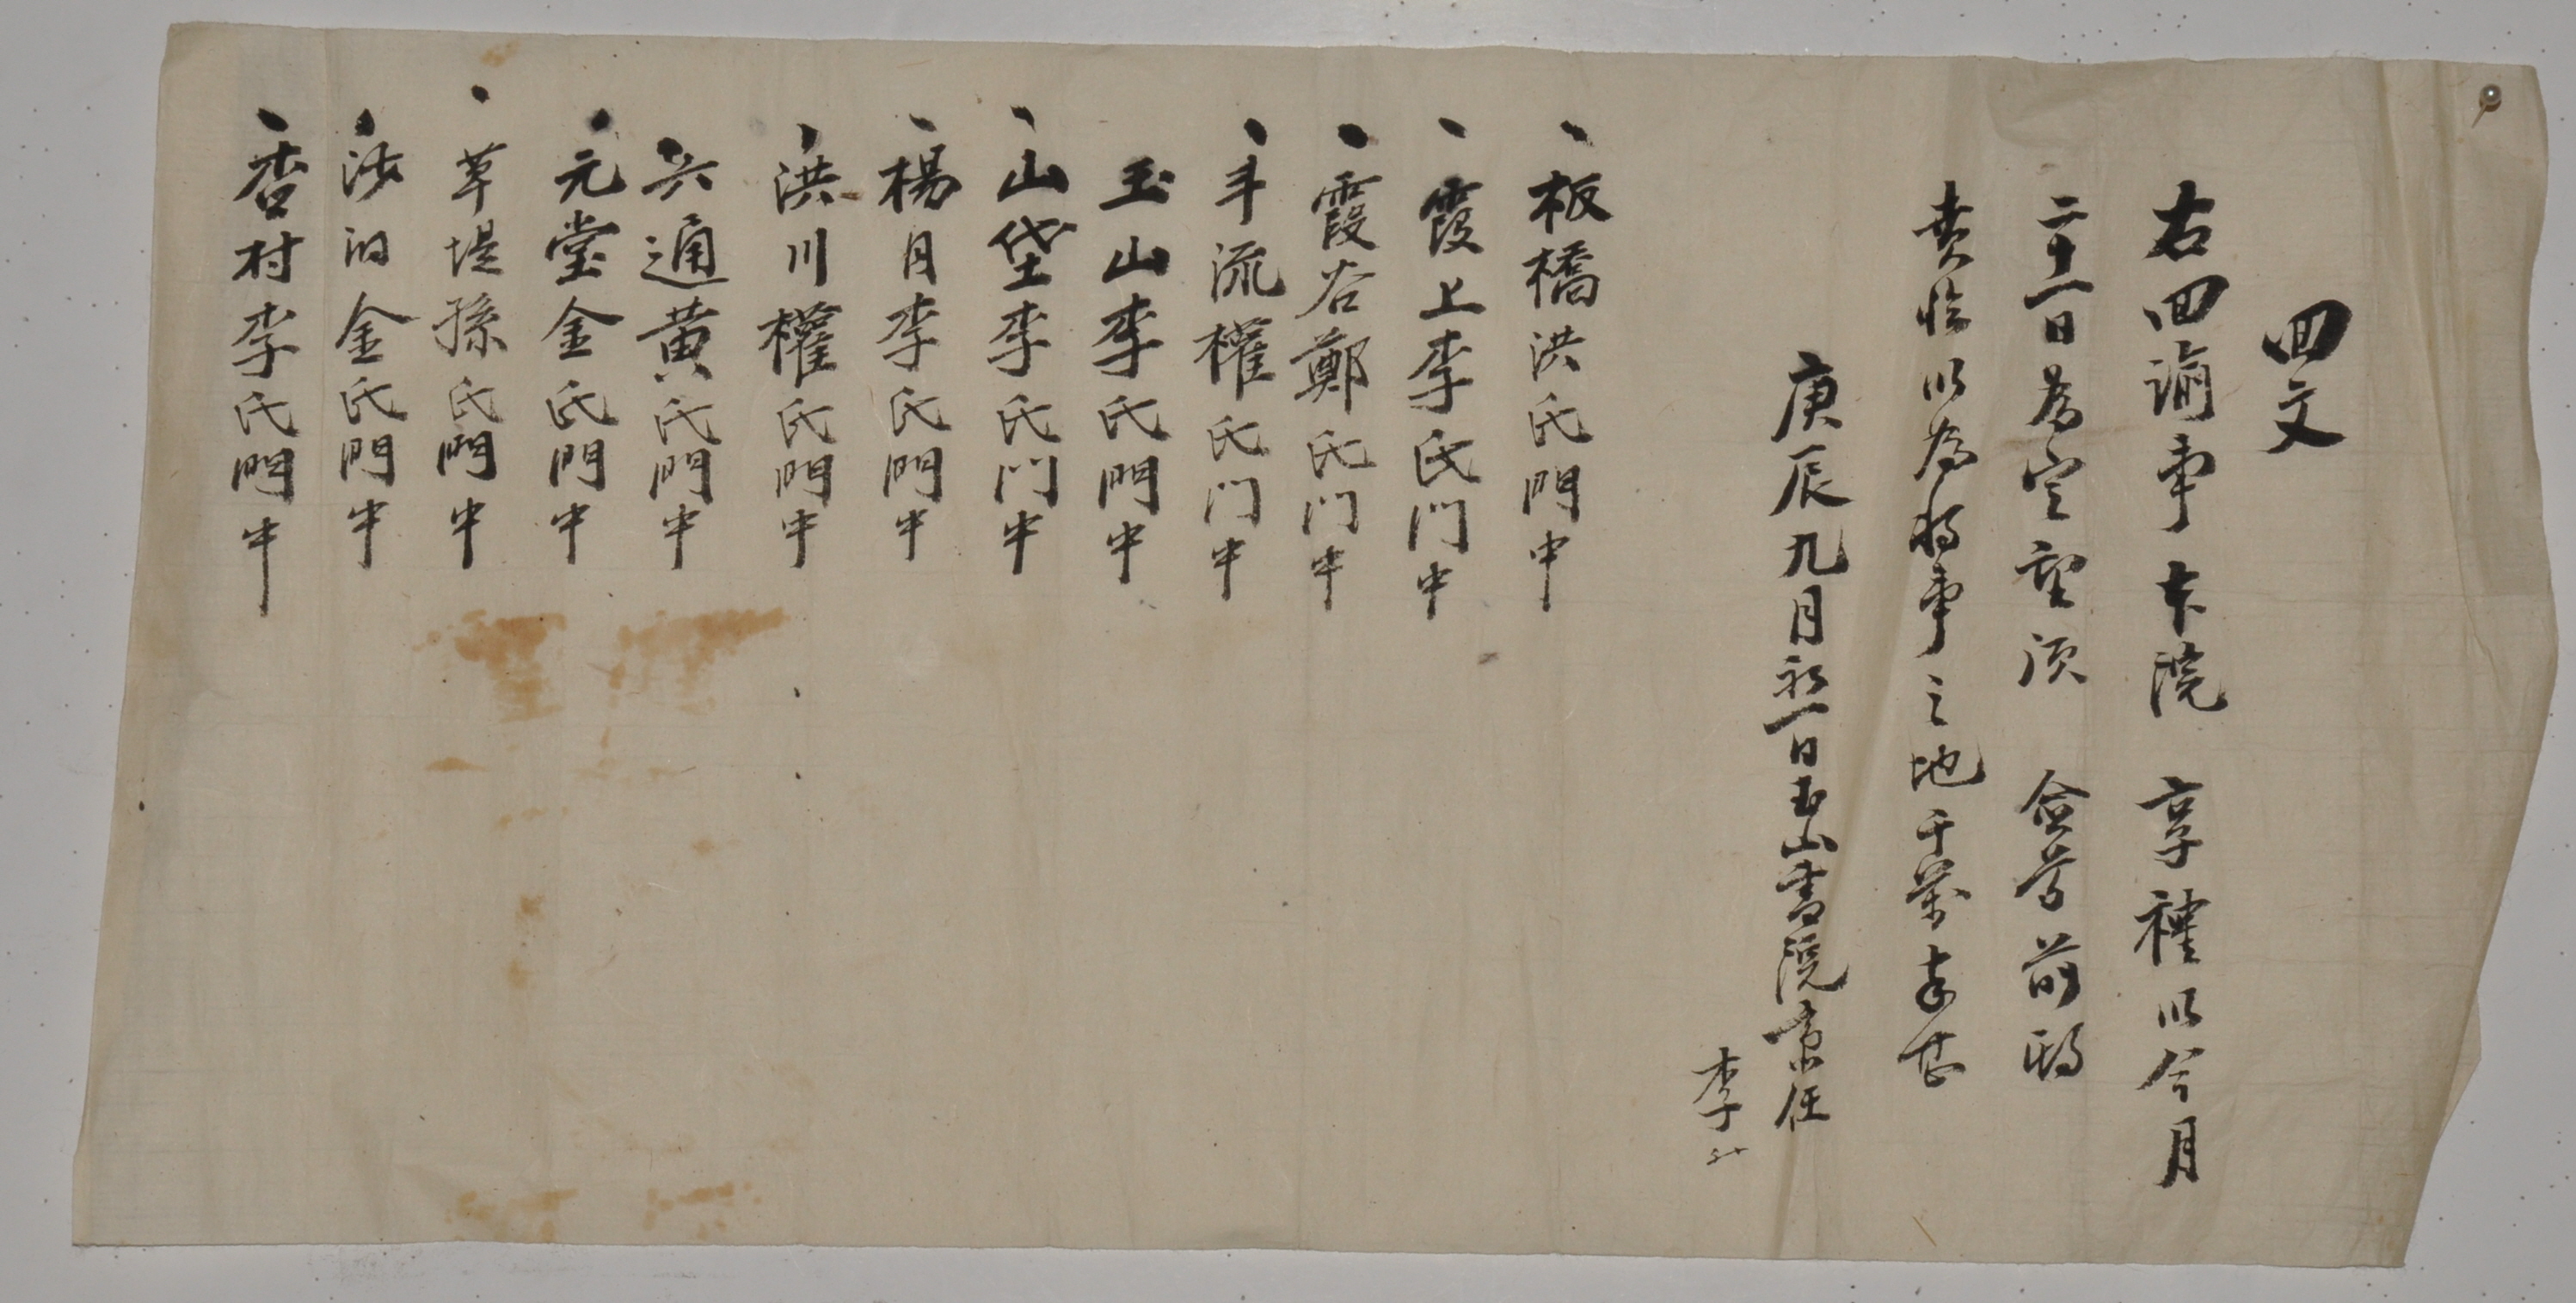 回文
右回諭事本院 享禮以今月
二十一日為定望須 僉尊前期
賁臨以為將事之地千萬幸甚
庚辰九月初一日玉山書院齋任
李
板橋洪氏門中
霞上李氏门中
霞谷鄭氏门中
半流權氏门中
玉山李氏門中
山垈李氏门中
楊月李氏門中
洪川權氏門中
六通黄氏門中
元堂金氏門中
草堤孫氏門中
沙的金氏門中
杏村李氏門中